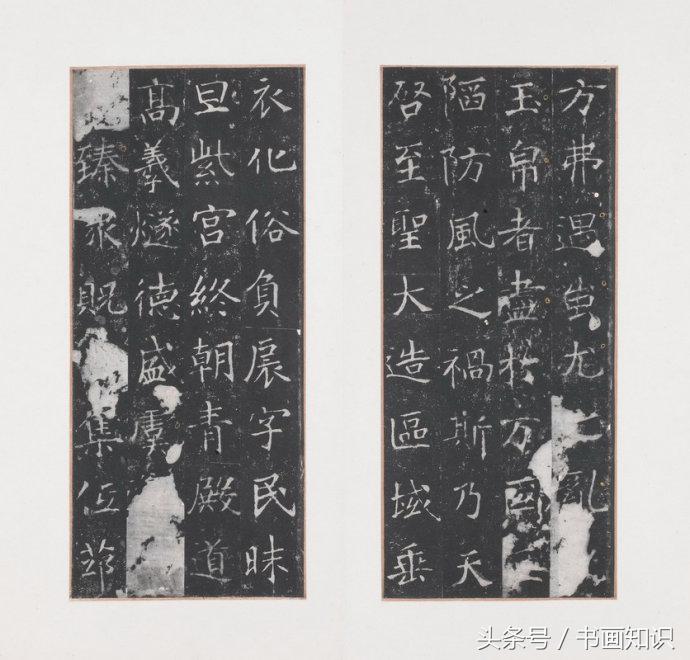 方弗遇蚩尤之亂
玉帛者盡於万國
陋防風之禍斯乃天
啓至聖大造區域垂
衣化俗負扆字民昧
旦紫宮終朝青殿道
髙羲燧德盛虞
臻永貺集伍茆
头条号 / 书画知识